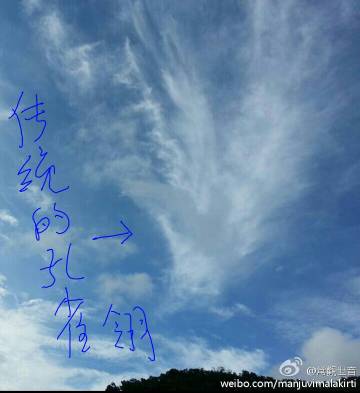 传统的孔雀翎
@常觀世音
weibo.com/manjuvimalakirti